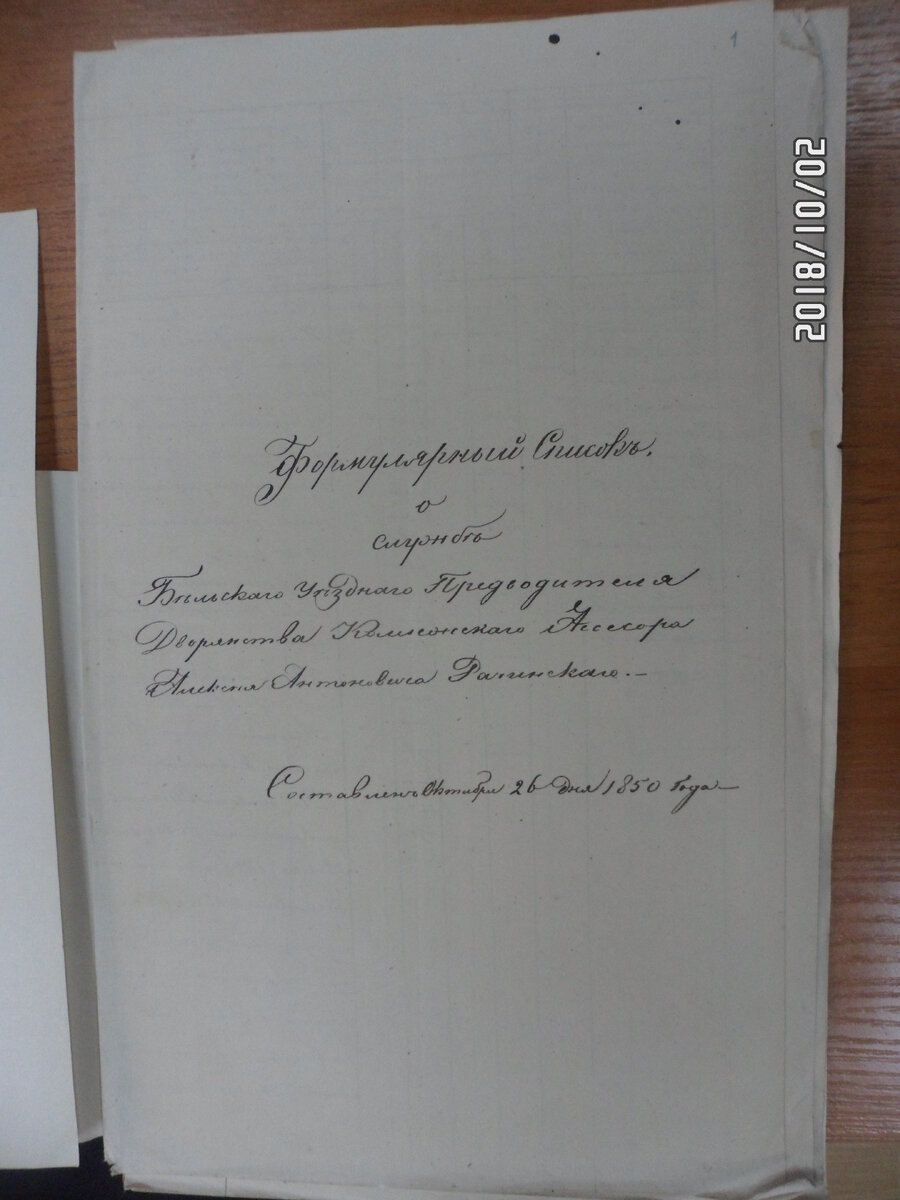 1
Формулярный Списокъ.
о
службѣ
Бѣльскаго Уѣзднаго Предводителя
Дворянства Коллежскаго Ассесора
Алексѣя Антоновича Рачинскаго.—
Составленъ Октября 26 дня 1850 года—
2018/10/02